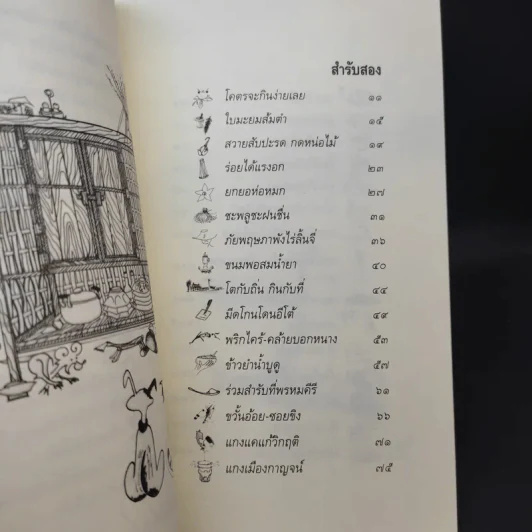 สำรับสอง
โคตรจะกินง่ายเลย ๑๑
ใบมะยมส้มตำ ๑๕
สวายสับปะรด กดหน่อไม้ ๑๙
ร่อยไต้แรงอก ๒๓
ยกยอห่อหมก ๒๗
ชะพลูชะฝนชื่น ๓๑
ภัยพฤษภาพังไร่ลิ้นจี่ ๓๖
ขนมพอสมน้ำยา ๔๐
โตกับถิ่น กินกับที่ ๔๔
มีดโกนโดนอีโต้ ๔๙
พริกไคร้-คล้ายบอกหนาง ๕๓
ข้าวยำน้ำบูดู ๕๗
ร่วมสำรับที่พรหมคีรี ๖๑
ขวั้นอ้อย-ซอยขิง ๖๖
แกงแคแก้วิกฤติ ๗๑
แกงเมืองกาญจน์ ๗๕